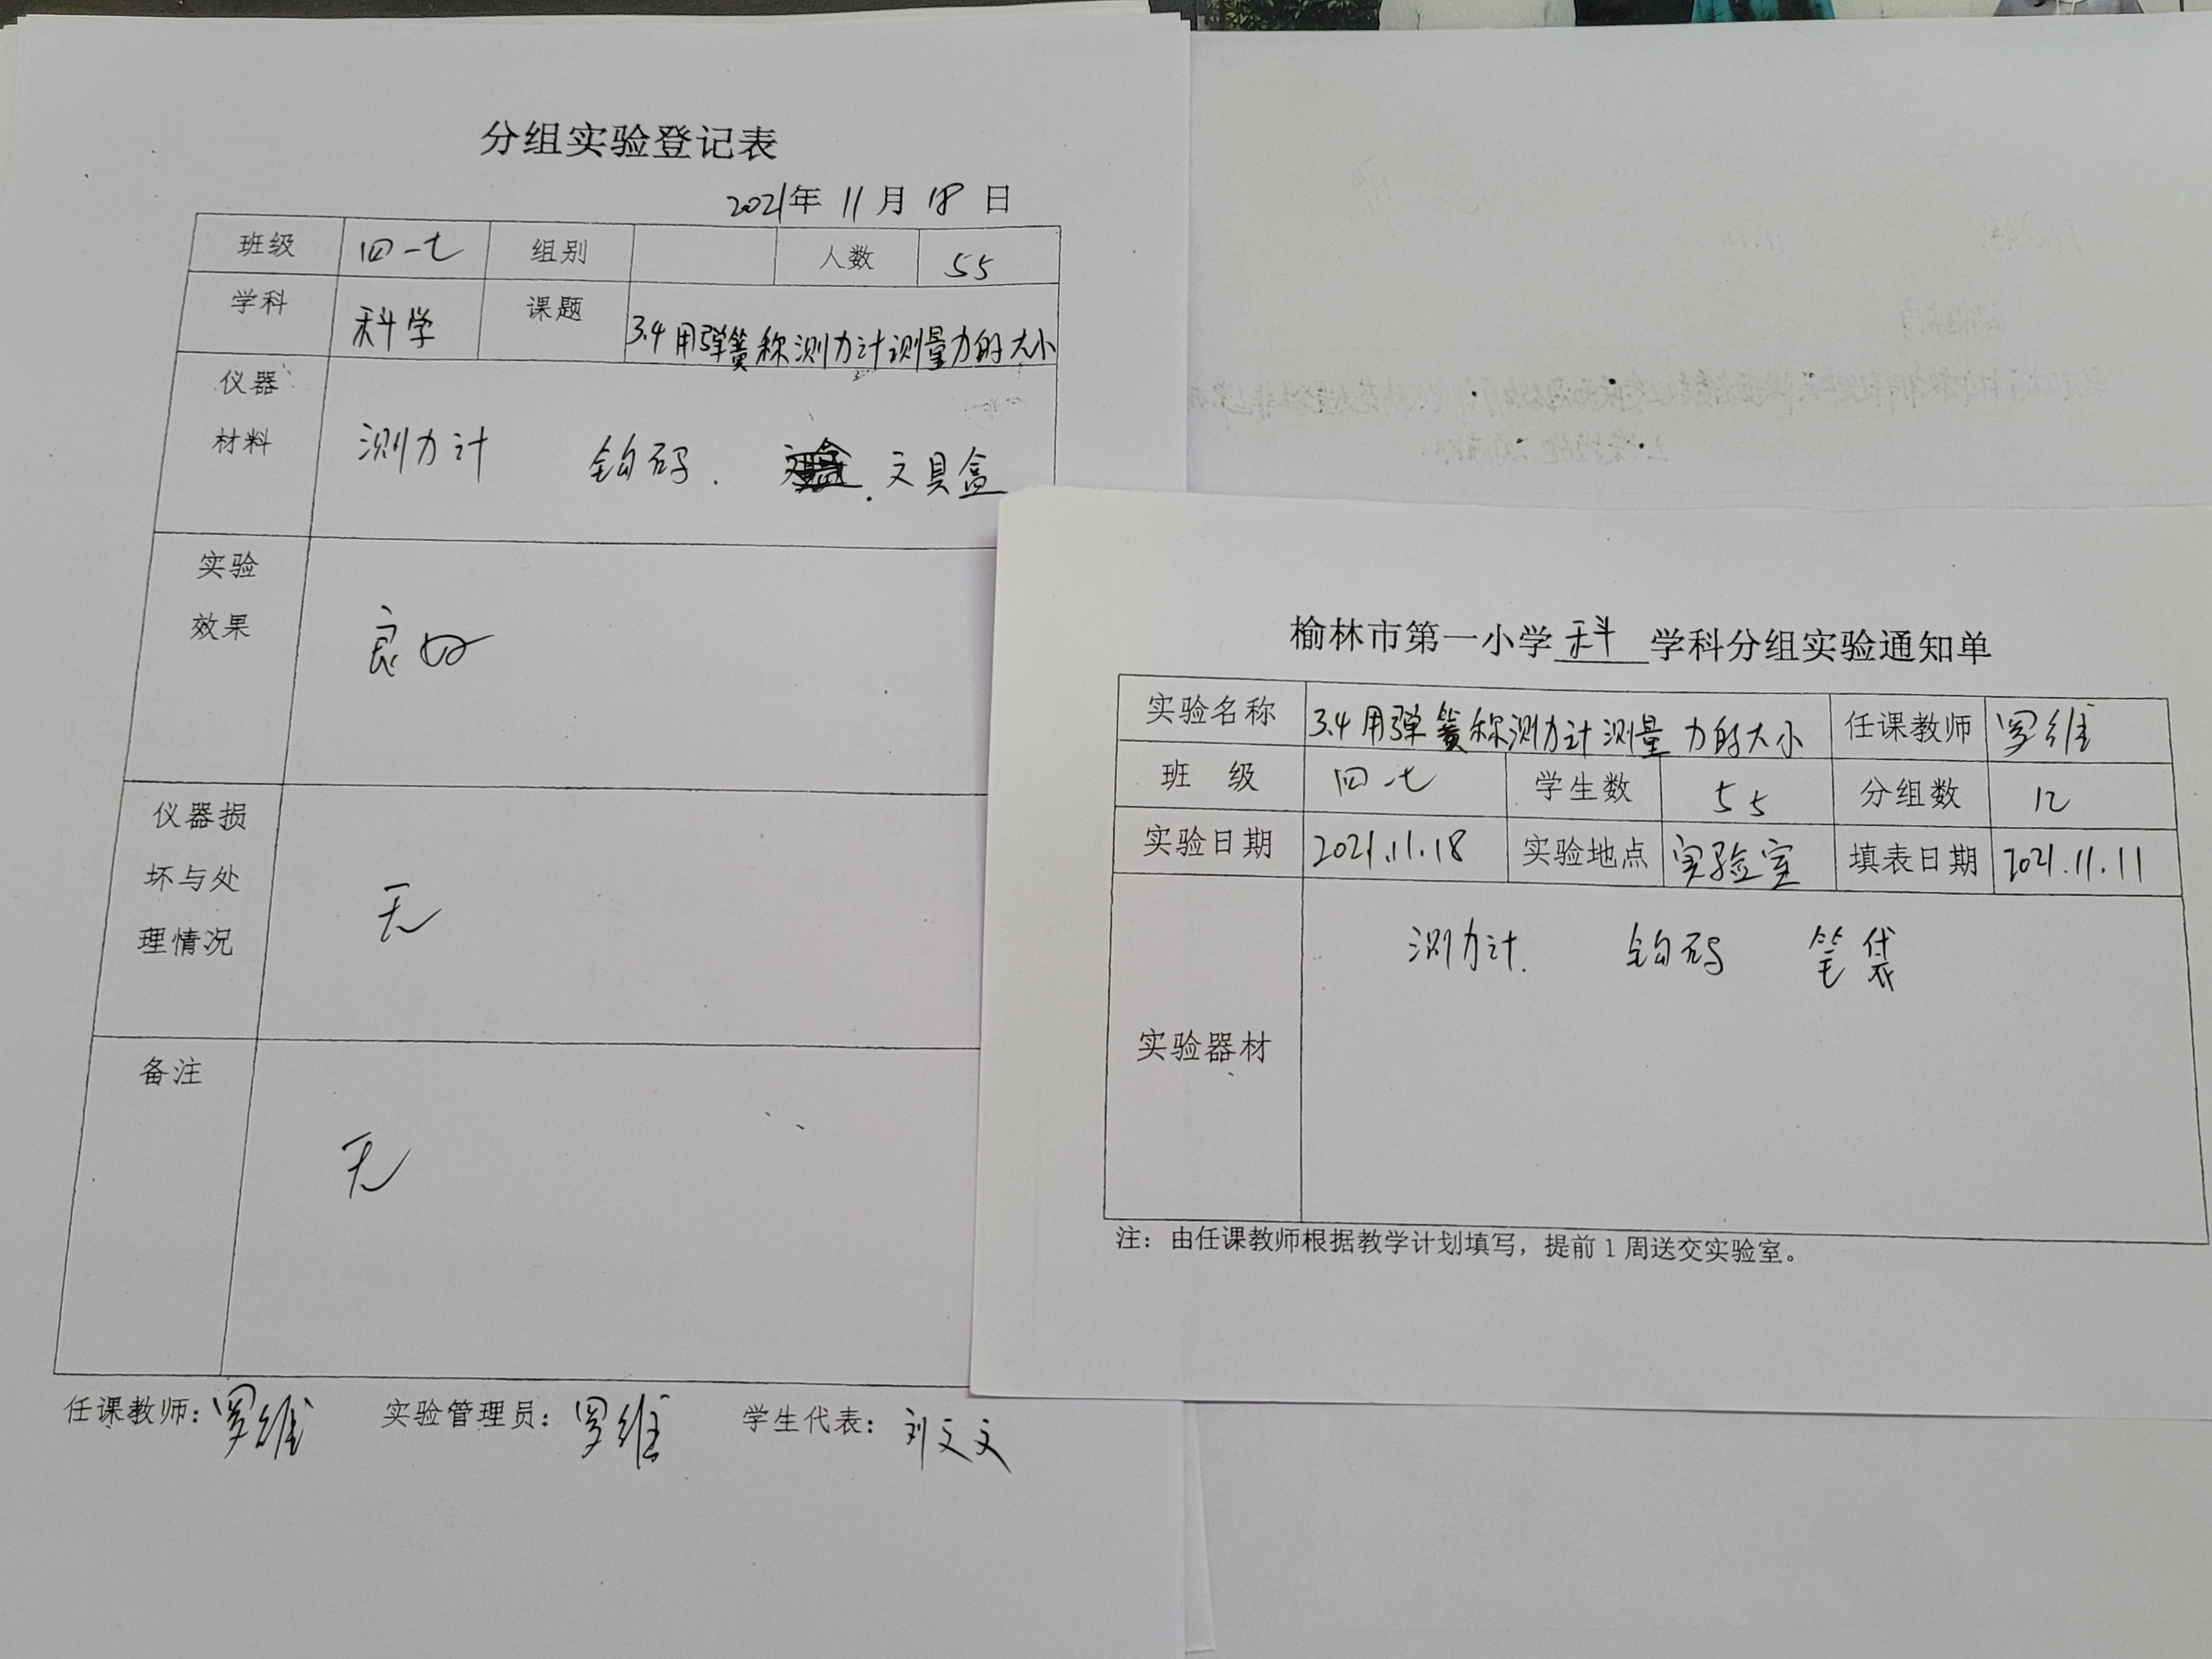 分组实验登记表
2021年 11 月 18 日
班级 四-七 组别 人数 55
学科 科学 课题 3.4用弹簧称测力计测量力的大小
仪器材料 测力计 钩码. 文具盒
实验效果 良好
仪器损坏与处理情况 无
备注 无
任课教师: 罗维 实验管理员: 罗维 学生代表: 刘文文
榆林市第一小学 科 学科分组实验通知单
实验名称 3.4用弹簧称测力计测量力的大小 任课教师 罗维
班 级 四-七 学生数 55 分组数 12
实验日期 2021.11.18 实验地点 实验室 填表日期 2021.11.11
实验器材 测力计. 钩码 笔袋
注: 由任课教师根据教学计划填写, 提前1周送交实验室。